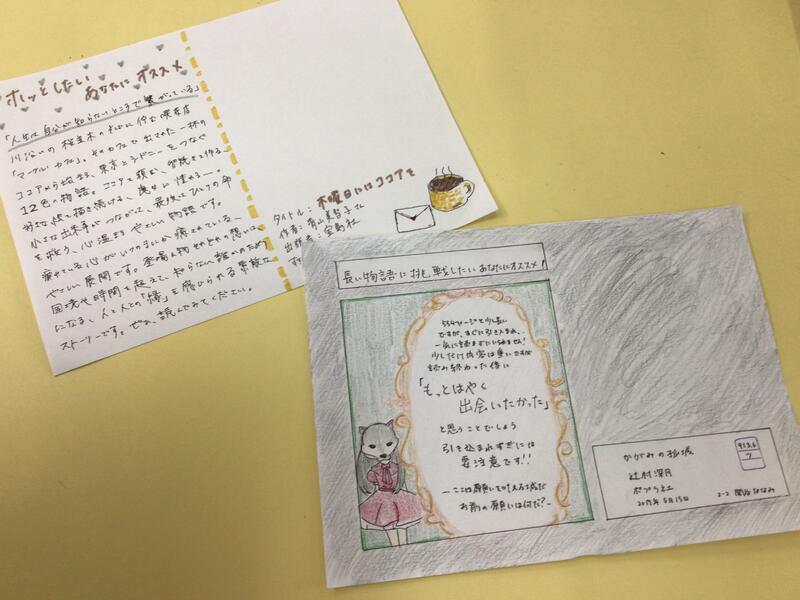 ホッとしたい
あなたにオススメ
「人生は自分が知らないところで繋がっている」
川沿いの桜並木のそばに佇む喫茶店
「マーブル・カフェ」。そのカフェで出された一杯の
ココアから始まる、東京とシドニーをつなぐ
12色の物語。ココアを頼む、卵焼きを作る、
小さな出来事がつながって、最後はひとつの命
を救う、心温まるやさしい物語です。
疲せている心がいつのまにか癒されている、
やさしい展開です。登場人物それぞれの想いは、
国境や時間を超えて、知らない誰かのため
になる、人と人との「縁」を感じられる素敵な
ストーリーです。ぜひ、読んでみてください。
タイトル：木曜日にはココアを
作者：青山美智子さん
出版社：宝島社
長い物語に挑戦したいあなたにオススメ！
554ページと少し長い
ですが、すぐに引き込まれ、
一気に読まずにいられません！
少しだけ内容は重いですが
読み終わった後に
「もっとはやく
出会いたかった」
と思うことでしょう
引き込まれすぎには
要注意です!!
―ここは願いを叶える城だ
お前の願いは何だ？―
かがみの孤城
辻村深月
ポプラ社
2017年5月15日
913.6
ツ
2-2